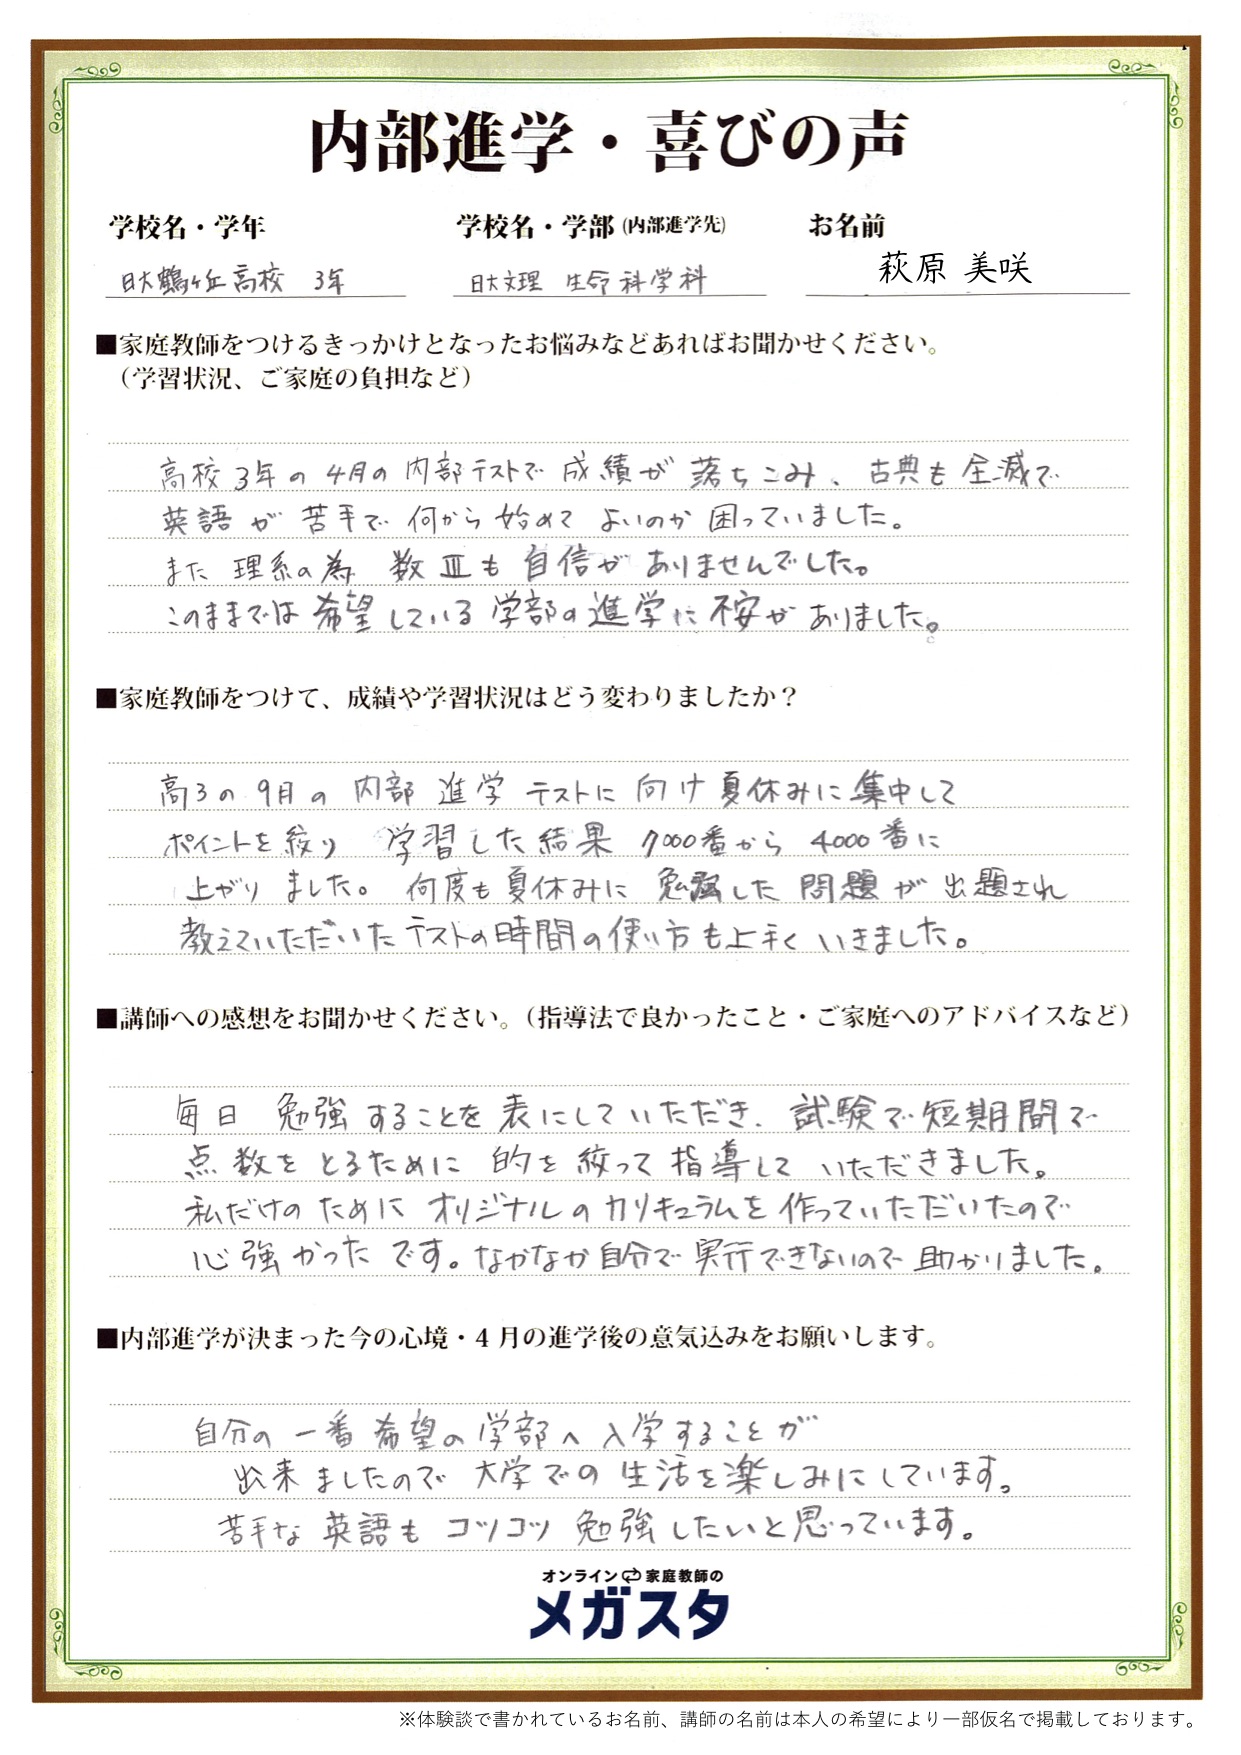 内部進学・喜びの声
学校名・学年
学校名・学部(内部進学先)
お名前
日大鶴ヶ丘高校 3年
日大文理 生命科学科
萩原 美咲
■家庭教師をつけるきっかけとなったお悩みなどあればお聞かせください。
（学習状況、ご家庭の負担など）
高校3年の4月の内部テストで成績が落ちこみ、古典も全滅で
英語が苦手で何から始めてよいのか困っていました。
また理系の為 数Ⅲも自信がありませんでした。
このままでは希望している学部の進学に不安がありました。
■家庭教師をつけて、成績や学習状況はどう変わりましたか？
高3の9月の内部進学テストに向け夏休みに集中して
ポイントを絞り 学習した結果 7000番から4000番に
上がりました。何度も夏休みに勉強した問題が出題され
教えていただいたテストの時間の使い方も上手くいきました。
■講師への感想をお聞かせください。（指導法で良かったこと・ご家庭へのアドバイスなど）
毎日 勉強することを表にしていただき、試験で短期間で
点数をとるために的を絞って指導していただきました。
私だけのためにオリジナルのカリキュラムを作っていただいたので
心強かったです。なかなか自分で実行できないので助かりました。
■内部進学が決まった今の心境・4月の進学後の意気込みをお願いします。
自分の一番希望の学部へ入学することが
出来ましたので大学での生活を楽しみにしています。
苦手な英語もコツコツ勉強したいと思っています。
オンライン家庭教師の
メガスタ
※体験談で書かれているお名前、講師の名前は本人の希望により一部仮名で掲載しております。